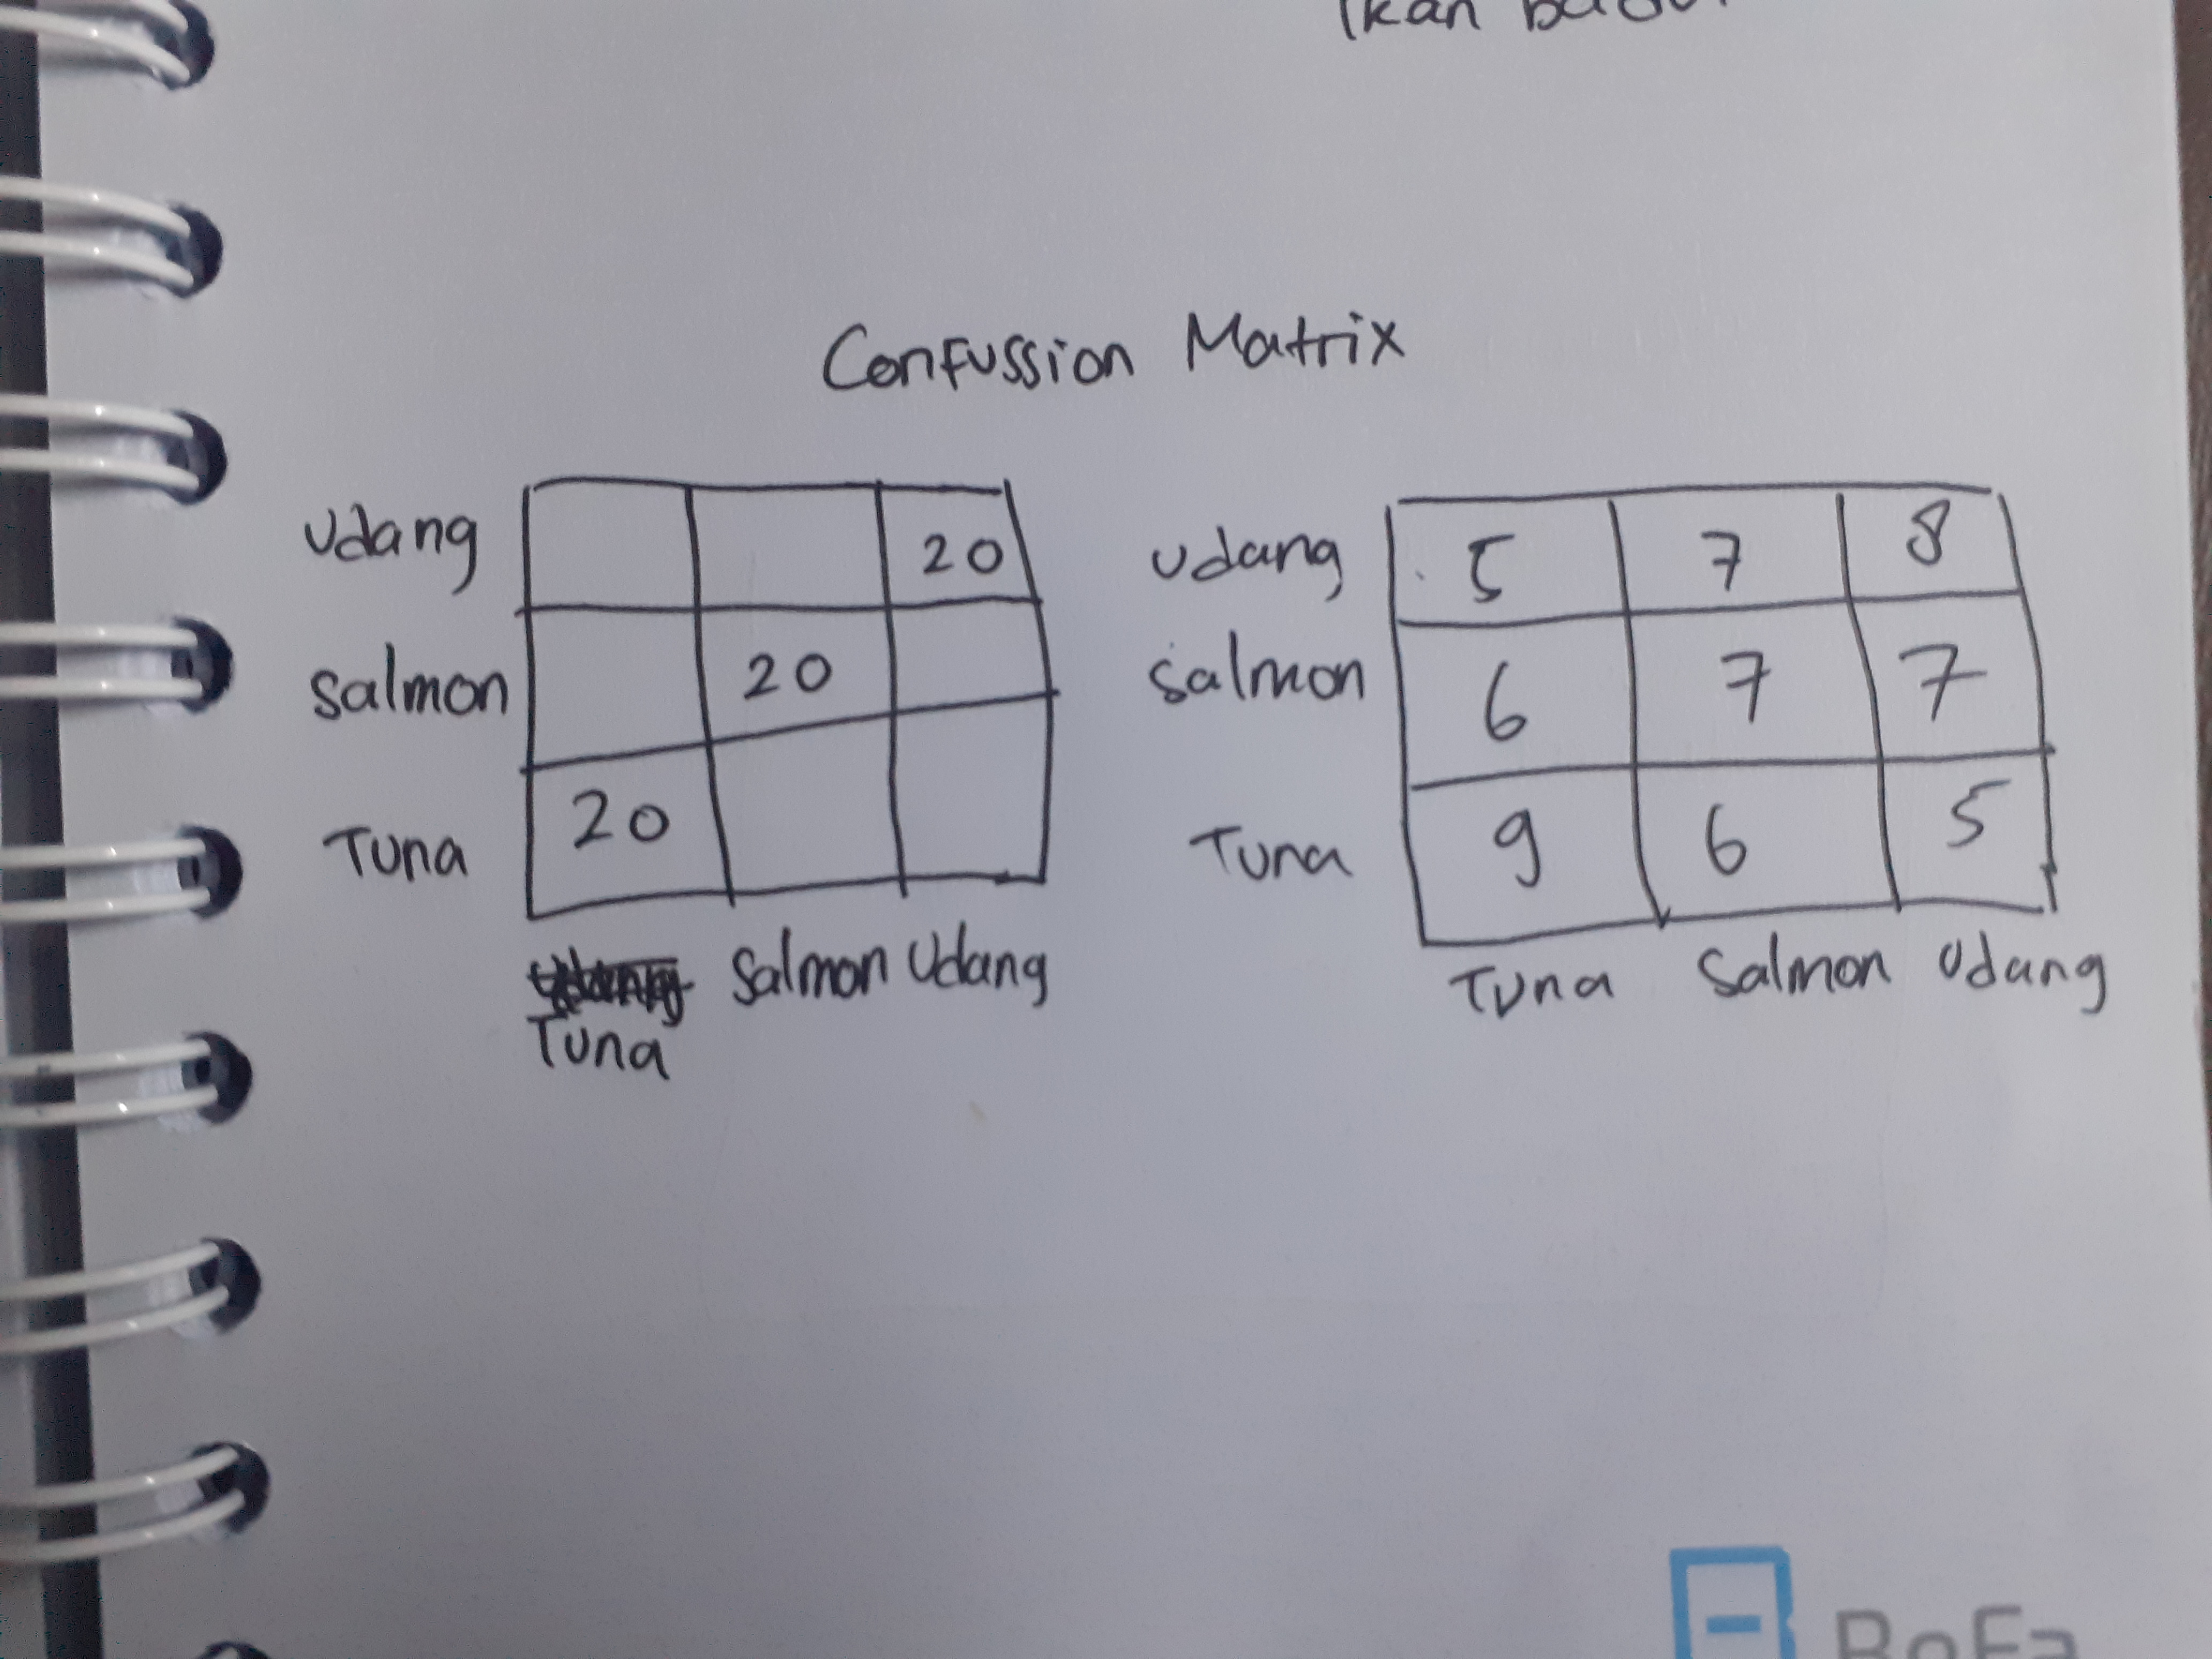 Ikan
Confussion Matrix
Udang 20
Salmon 20
Tuna 20
Salmon Udang
Tuna
Udang 5 7 8
Salmon 6 7 7
Tuna 9 6 5
Tuna Salmon Udang